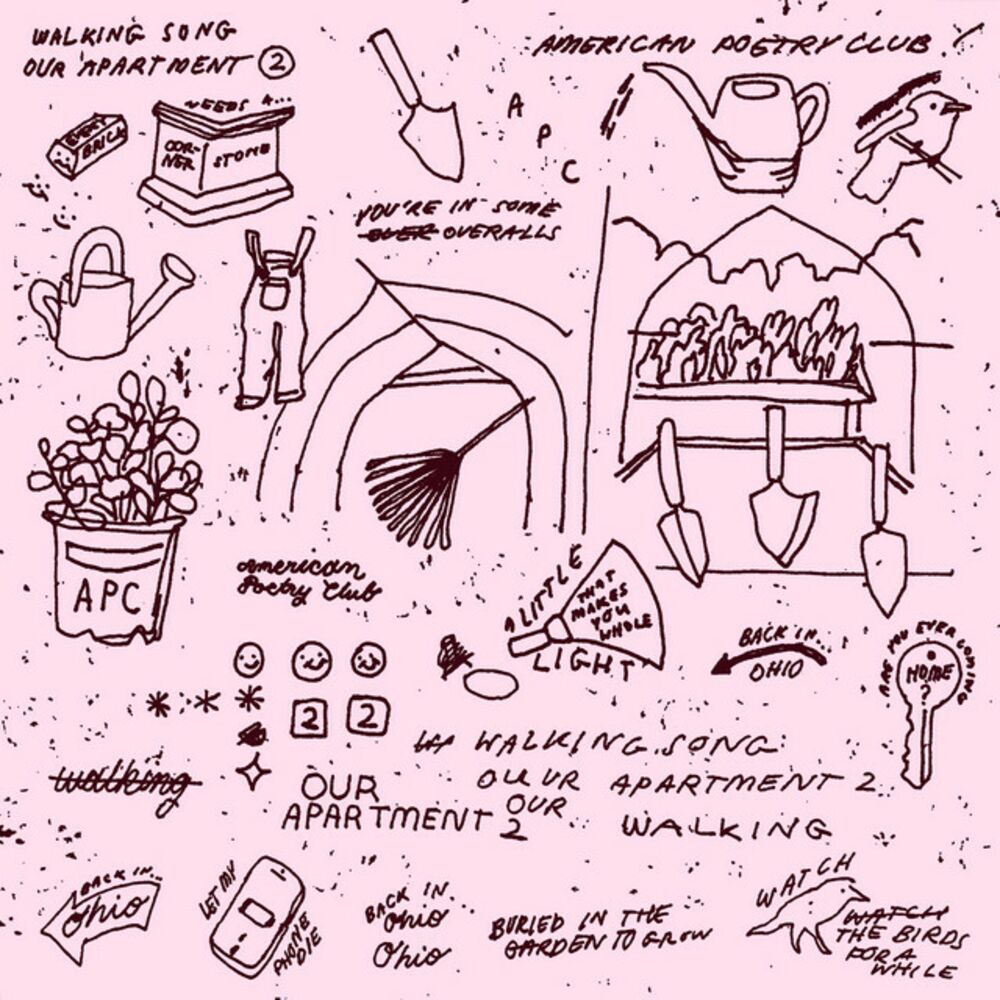 WALKING SONG
OUR APARTMENT 2
AMERICAN POETRY CLUB
EVERY
BRICK
NEEDS A...
COR-
NER
STONE
A
P
C
YOU'RE IN SOME
OVER OVERALLS
APC
American
Poetry Club
A LITTLE
LIGHT
THAT
MAKES
YOU
WHOLE
BACK IN...
OHIO
ARE YOU EVER COMING
HOME
?
2 2
WALKING SONG
OUR APARTMENT 2
OUR
walking
OUR
APARTMENT 2
WALKING
BACK IN...
Ohio
LET MY
PHONE
DIE
BACK IN..
Ohio
Ohio
BURIED IN THE
GARDEN TO GROW
WATCH
WATCH
THE BIRDS
FOR A
WHILE